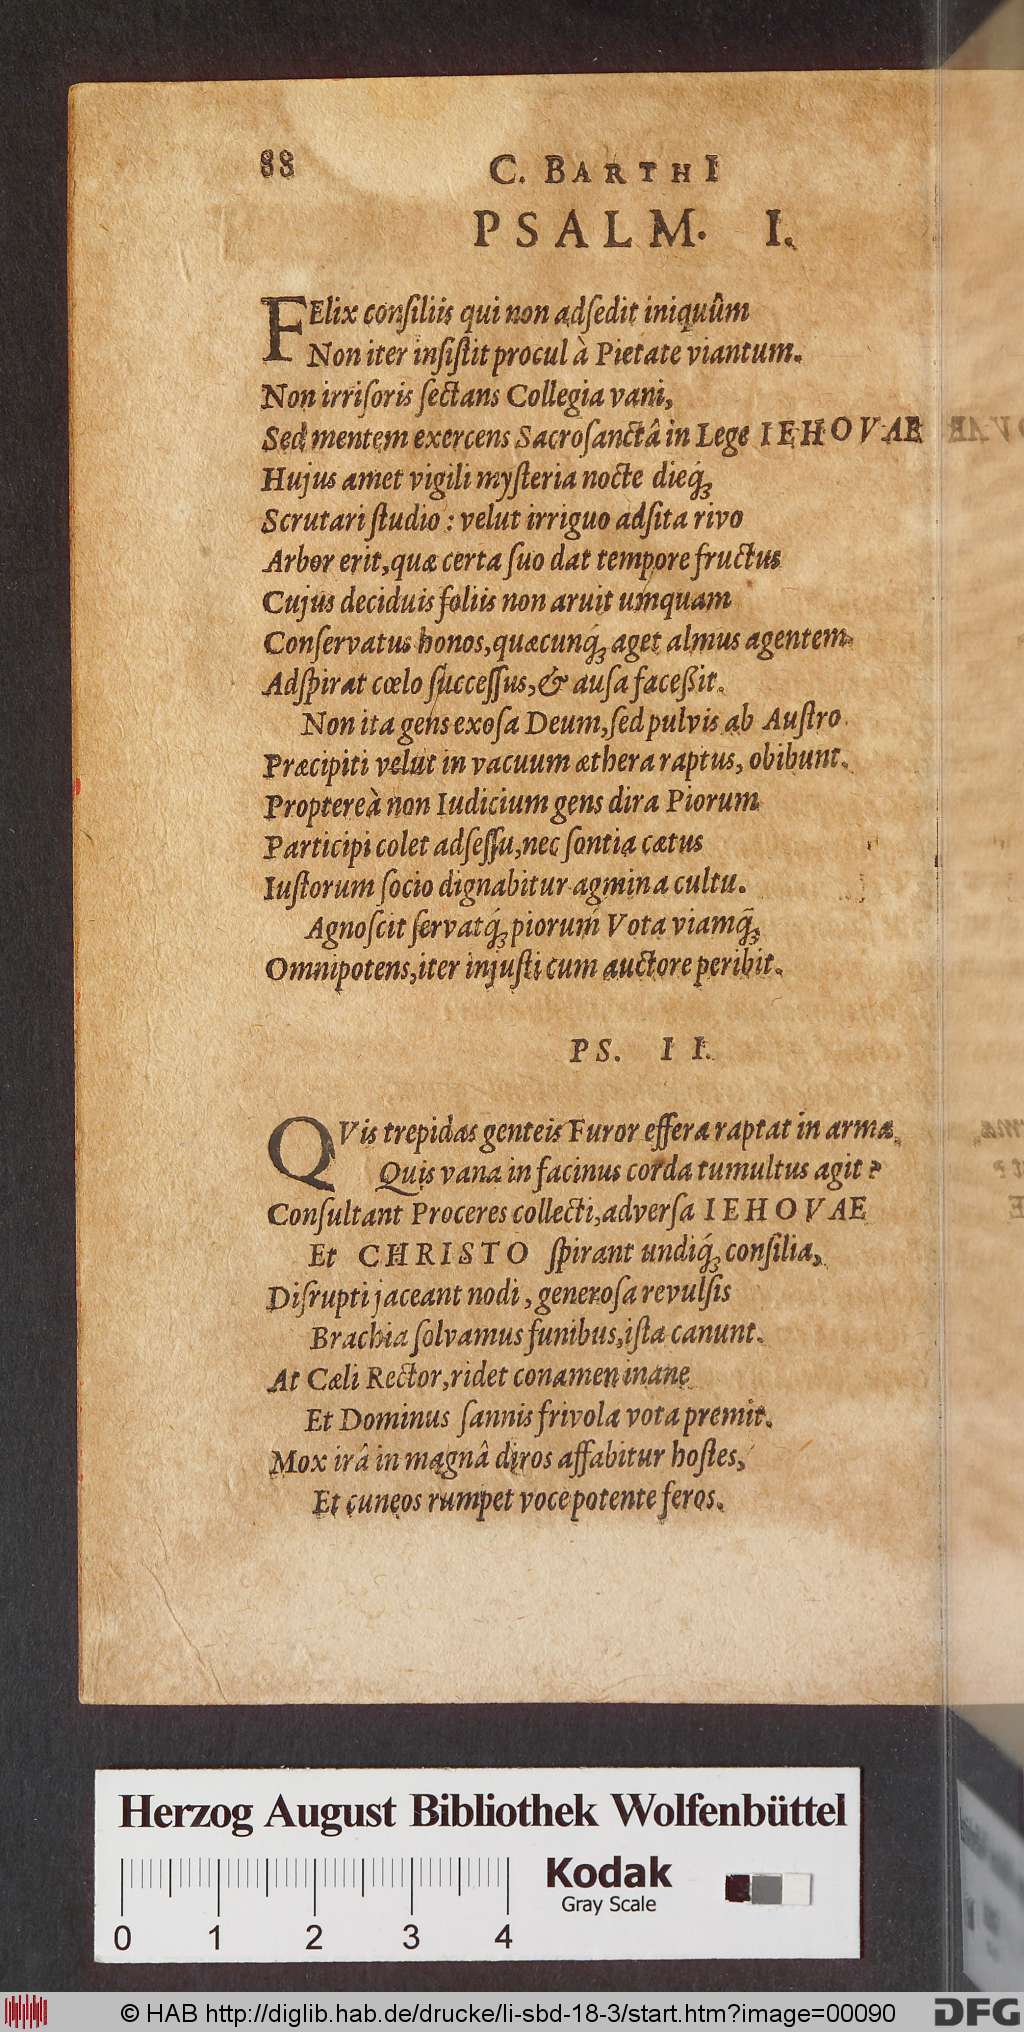 88
C. BARTHI
PSALM. I.
FElix consiliis qui non adsedit iniquûm
Non iter insistit procul à Pietate viantum.
Non irrisoris sectans Collegia vani,
Sed mentem exercens Sacrosanctâ in Lege IEHOVAE
Hujus amet vigili mysteria nocte dieq́;
Scrutari studio : velut irriguo adsita rivo
Arbor erit, quæ certa suo dat tempore fructus
Cujus deciduis foliis non aruit umquam
Conservatus honos, quæcunq́; aget almus agentem
Adspirat cœlo successus, & ausa faceßit.
Non ita gens exosa Deum, sed pulvis ab Austro
Præcipiti velut in vacuum æthera raptus, obibunt.
Proptereà non Iudicium gens dira Piorum
Participi colet adsessu, nec sontia cætus
Iustorum socio dignabitur agmina cultu.
Agnoscit servatq́; piorum Vota viamq́;
Omnipotens, iter injusti cum auctore peribit.
PS. II.
QVis trepidas genteis Furor effera raptat in arma,
Quis vana in facinus corda tumultus agit?
Consultant Proceres collecti, adversa IEHOVAE
Et CHRISTO spirant undiq́; consilia,
Disrupti jaceant nodi, generosa revulsis
Brachia solvamus funibus, ista canunt.
At Cæli Rector, ridet conamen inane
Et Dominus sannis frivola vota premit.
Mox irâ in magnâ diros affabitur hostes,
Et cuneos rumpet voce potente feros.
Herzog August Bibliothek Wolfenbüttel
Kodak
Gray Scale
0 1 2 3 4
© HAB http://diglib.hab.de/drucke/li-sbd-18-3/start.htm?image=00090
DFG